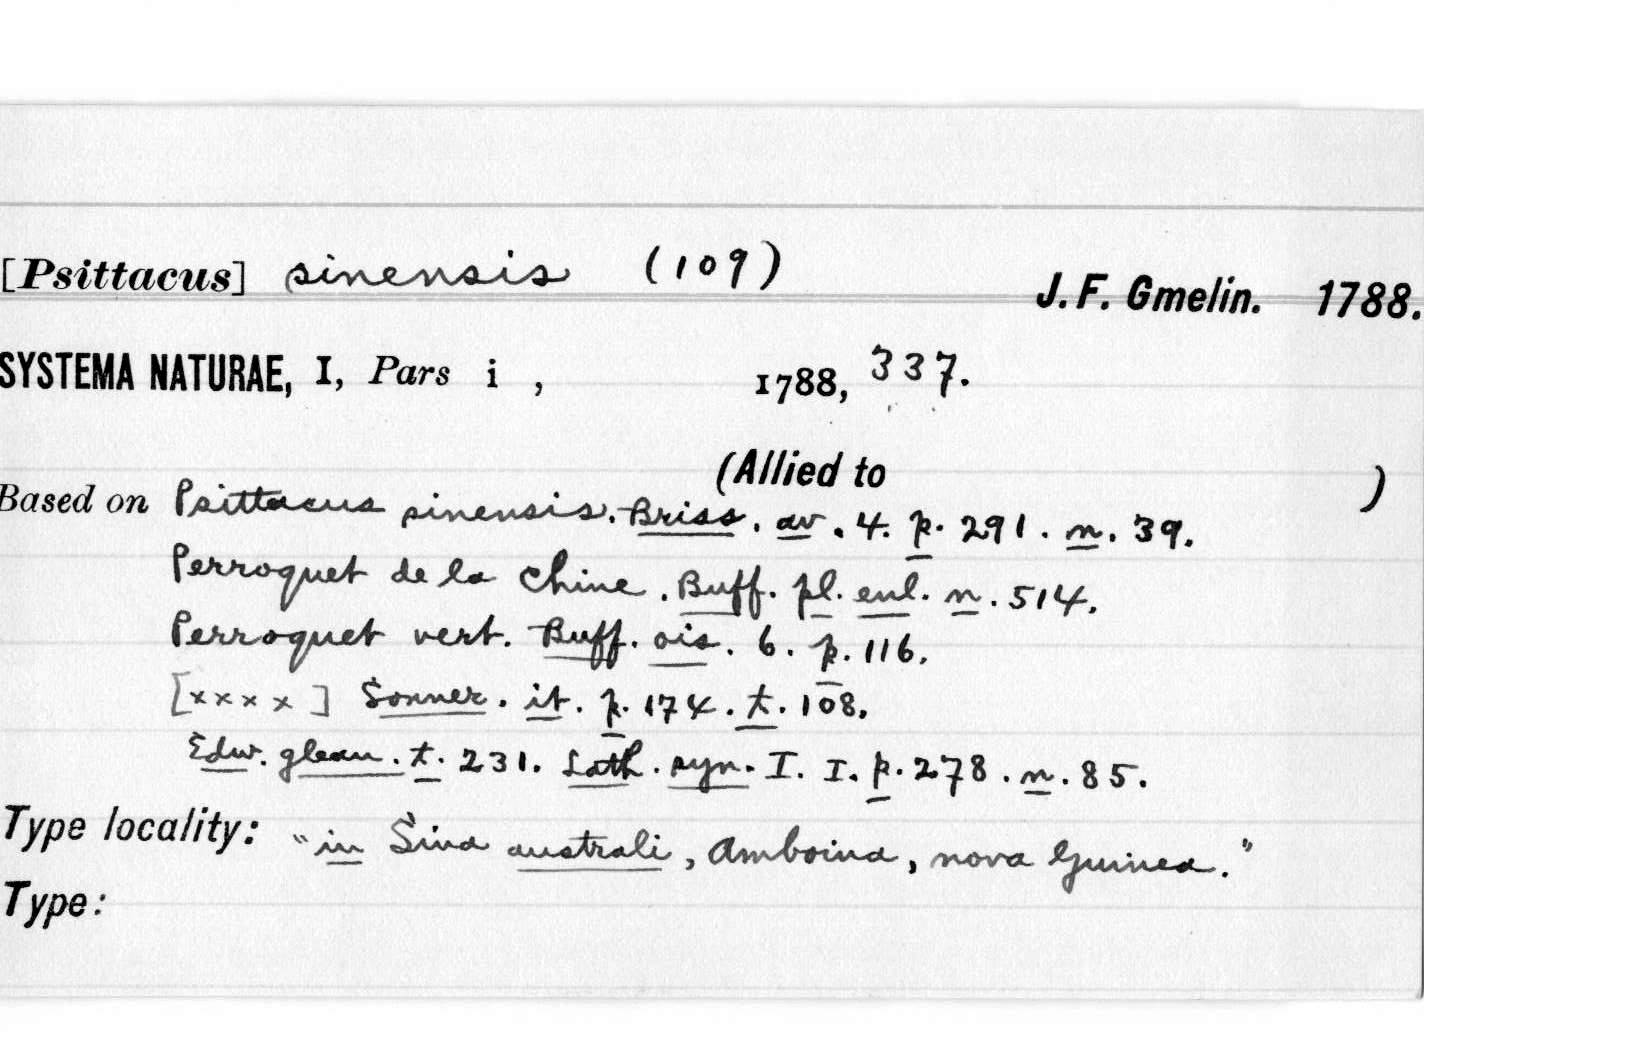 [Psittacus] sinensis (109)
J. F. Gmelin. 1788.
SYSTEMA NATURAE, I, Pars i , 1788, 337.
(Allied to )
Based on Psittacus sinensis. Briss. av. 4. p. 291. n. 39.
Perroquet de la Chine. Buff. pl. enl. n. 514.
Perroquet vert. Buff. ois. 6. p. 116.
[x x x x] Sonner. it. p. 174. t. 108.
Edw. glean. t. 231. Lath. syn. I. I. p. 278. n. 85.
Type locality: "in Sina australi, Amboina, nova Guinea."
Type: